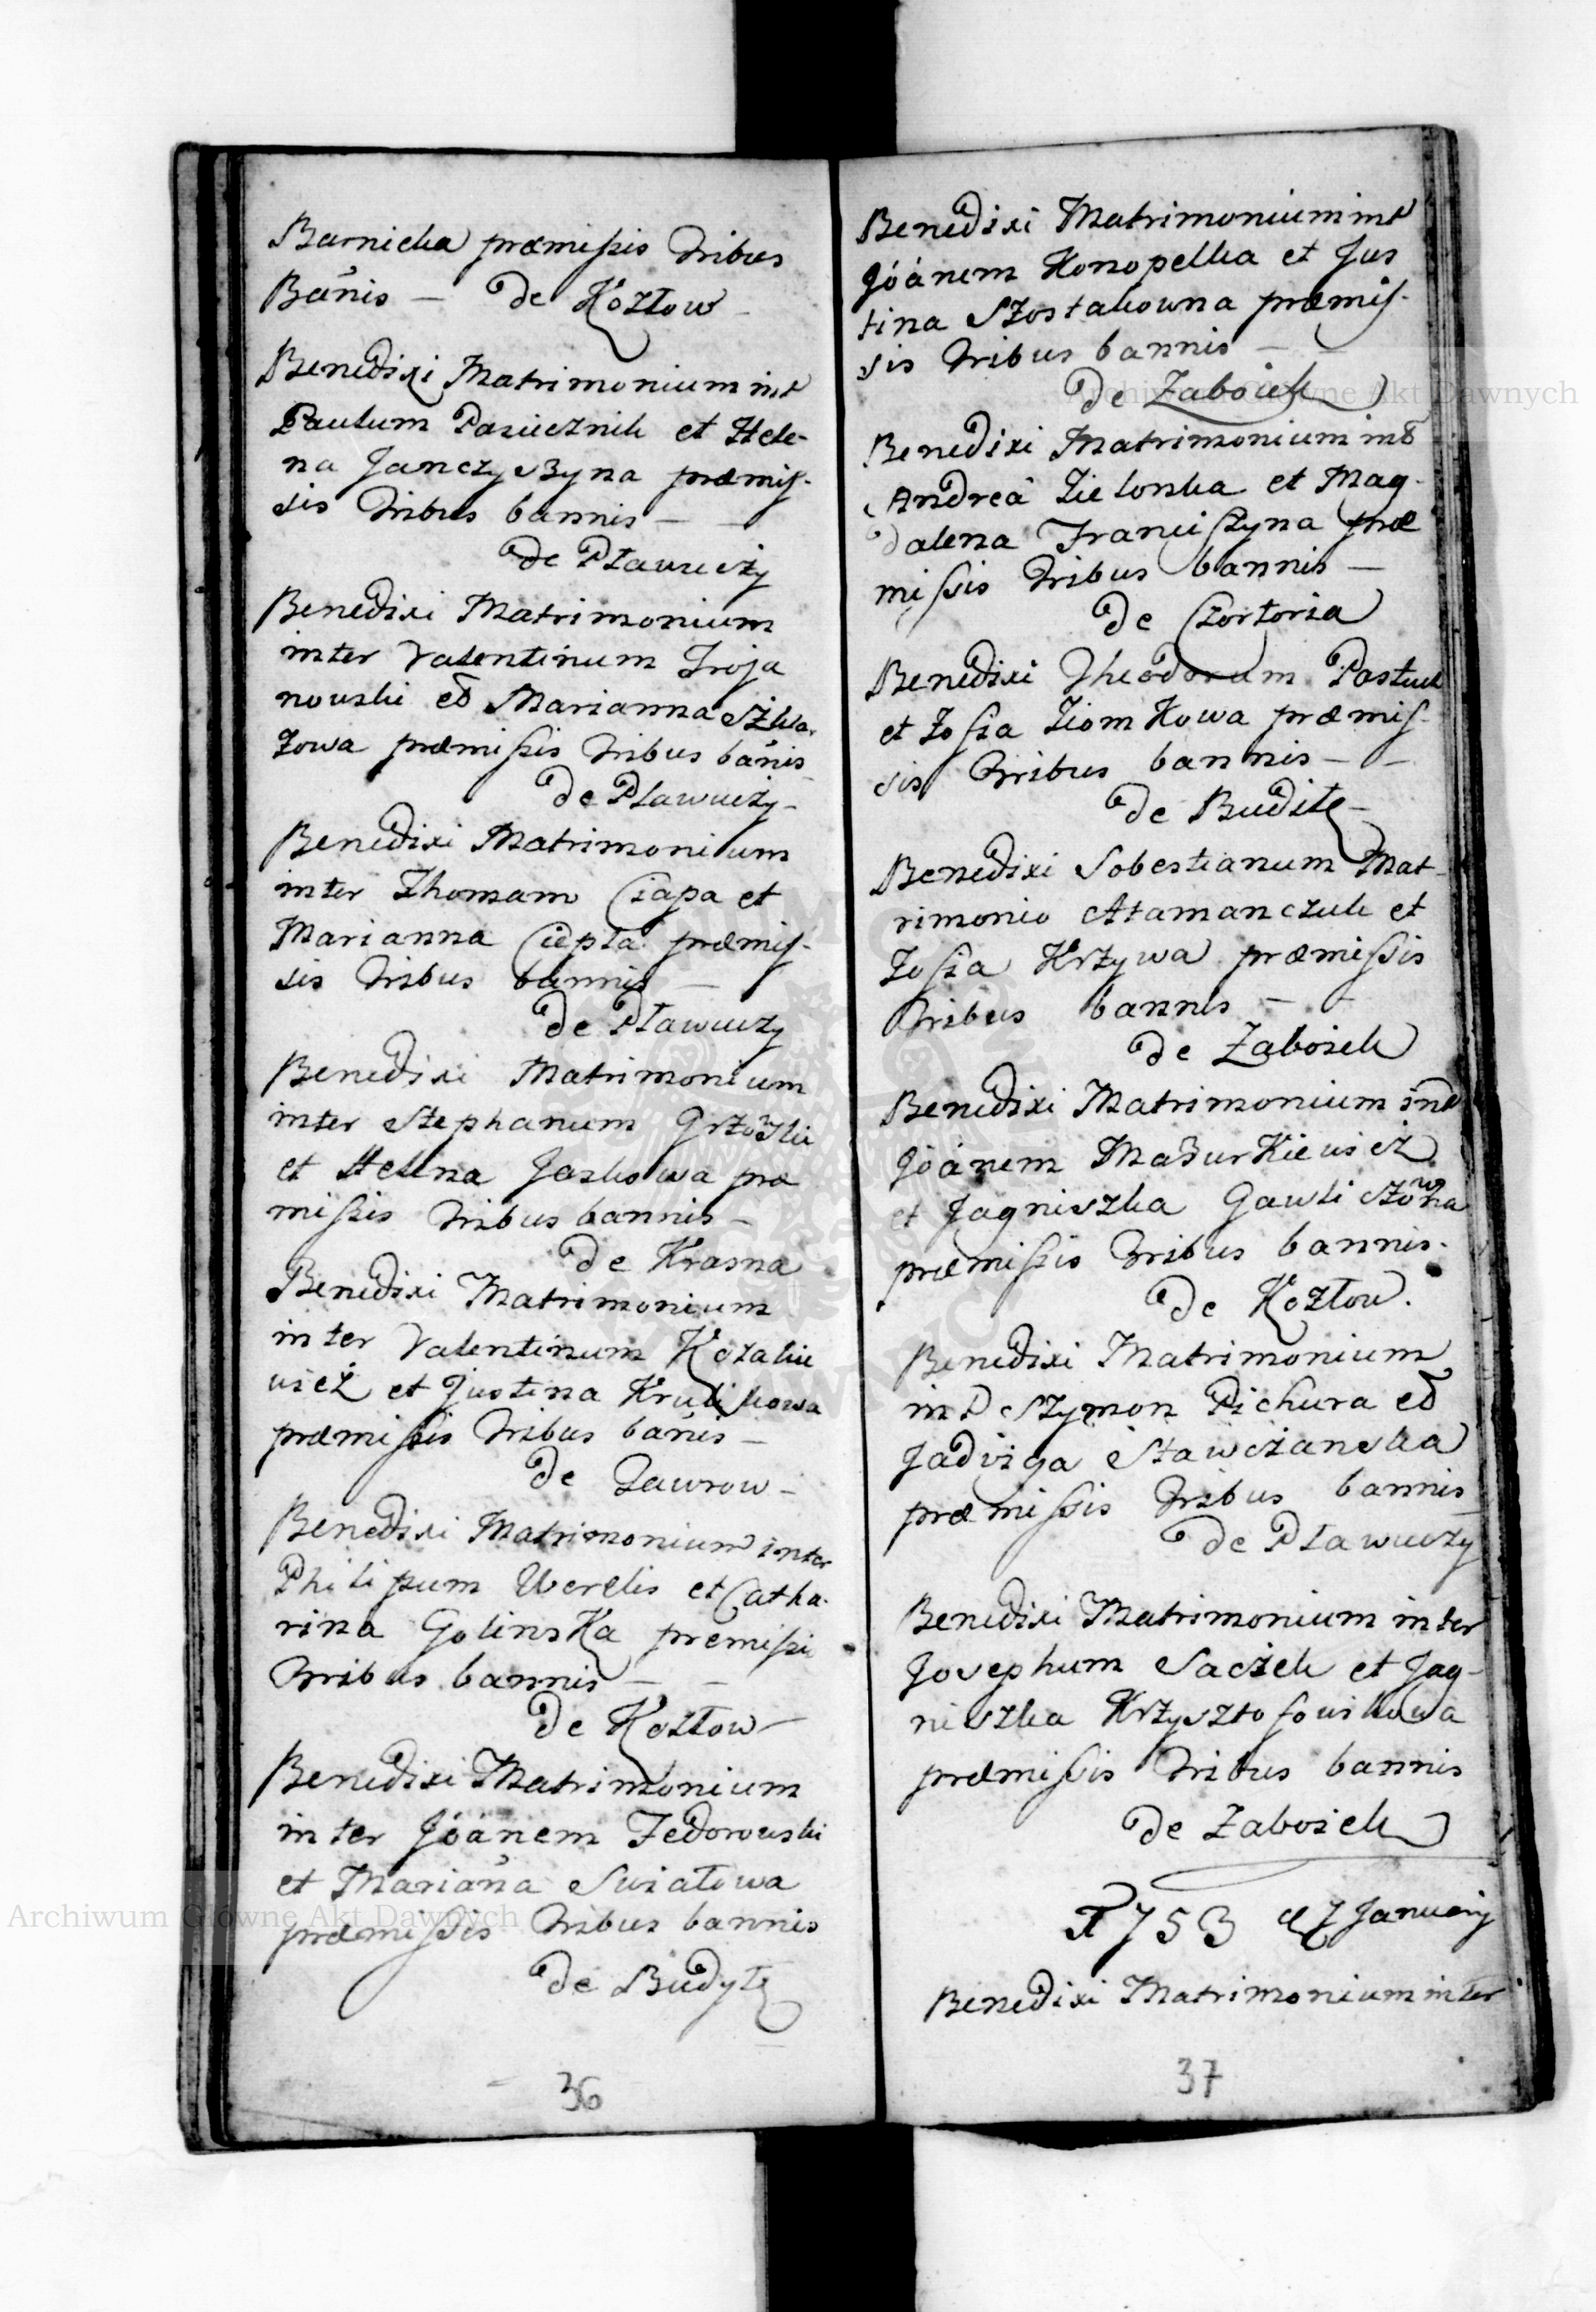 Barnicka præmissis tribus
Banis — de Kozłow
Benedixi Matrimonium int
Paulum Pasiecznik et Hele-
na Janczyszyna præmis-
sis tribus bannis —
de Pławuczy
Benedixi Matrimonium
inter Valentinum Troja
nouski et Marianna
zowa præmissis tribus banis
de Pławuczy
Benedixi Matrimonium
inter Thomam Ciapa et
Marianna Ciepła præmis-
sis tribus bannis —
de Pławuczy
Benedixi Matrimonium
inter Stephanum
et Helena Jaskowa præ
missis tribus bannis —
de Krasna
Benedixi Matrimonium
inter Valentinum Kozakie
uicz et Justina Krulikowa
præmissis tribus banis —
de Taurow —
Benedixi Matrimonium inter
Philipum Werelis et Catha-
rina Golinska premissi
tribus bannis —
de Kozłow —
Benedixi Matrimonium
inter Joanem Fedorouski
et Mariana Swiatowa
præmissis tribus bannis
de Budyłę
36
Benedixi Matrimonium int
Joanem Konopelka et Jus
tina Szostakowna præmis-
sis tribus bannis —
de Zaboiek
Benedixi Matrimonium int
Andrea Zielonka et Mag-
dalena Franciszyna præ
missis tribus bannis —
de Czortoria
Benedixi Theodorum Pastuch
et Zosia Ziomkowa præmis-
sis tribus bannis —
de Budiłę
Benedixi Sobestianum Mat-
rimonio Atamanczuk et
Zosia Krzywa præmissis
tribus bannis —
de Zaboiek
Benedixi Matrimonium int
Joanem Mazurkieuicz
et Jagniszka Gawliczowna
præmissis tribus bannis.
de Kozłow.
Benedixi Matrimonium
int Szymon Pichura et
Jadviga Stawczanska
præmissis tribus bannis
de Pławuczy
Benedixi Matrimonium inter
Josephum Saciek et Jag-
niszka Krzysztofouikowa
præmissis tribus bannis
de Zaboiek
1753 7 Januarij
Benedixi Matrimonium inter
37
Archiwum Główne Akt Dawnych
Archiwum Główne Akt Dawnych